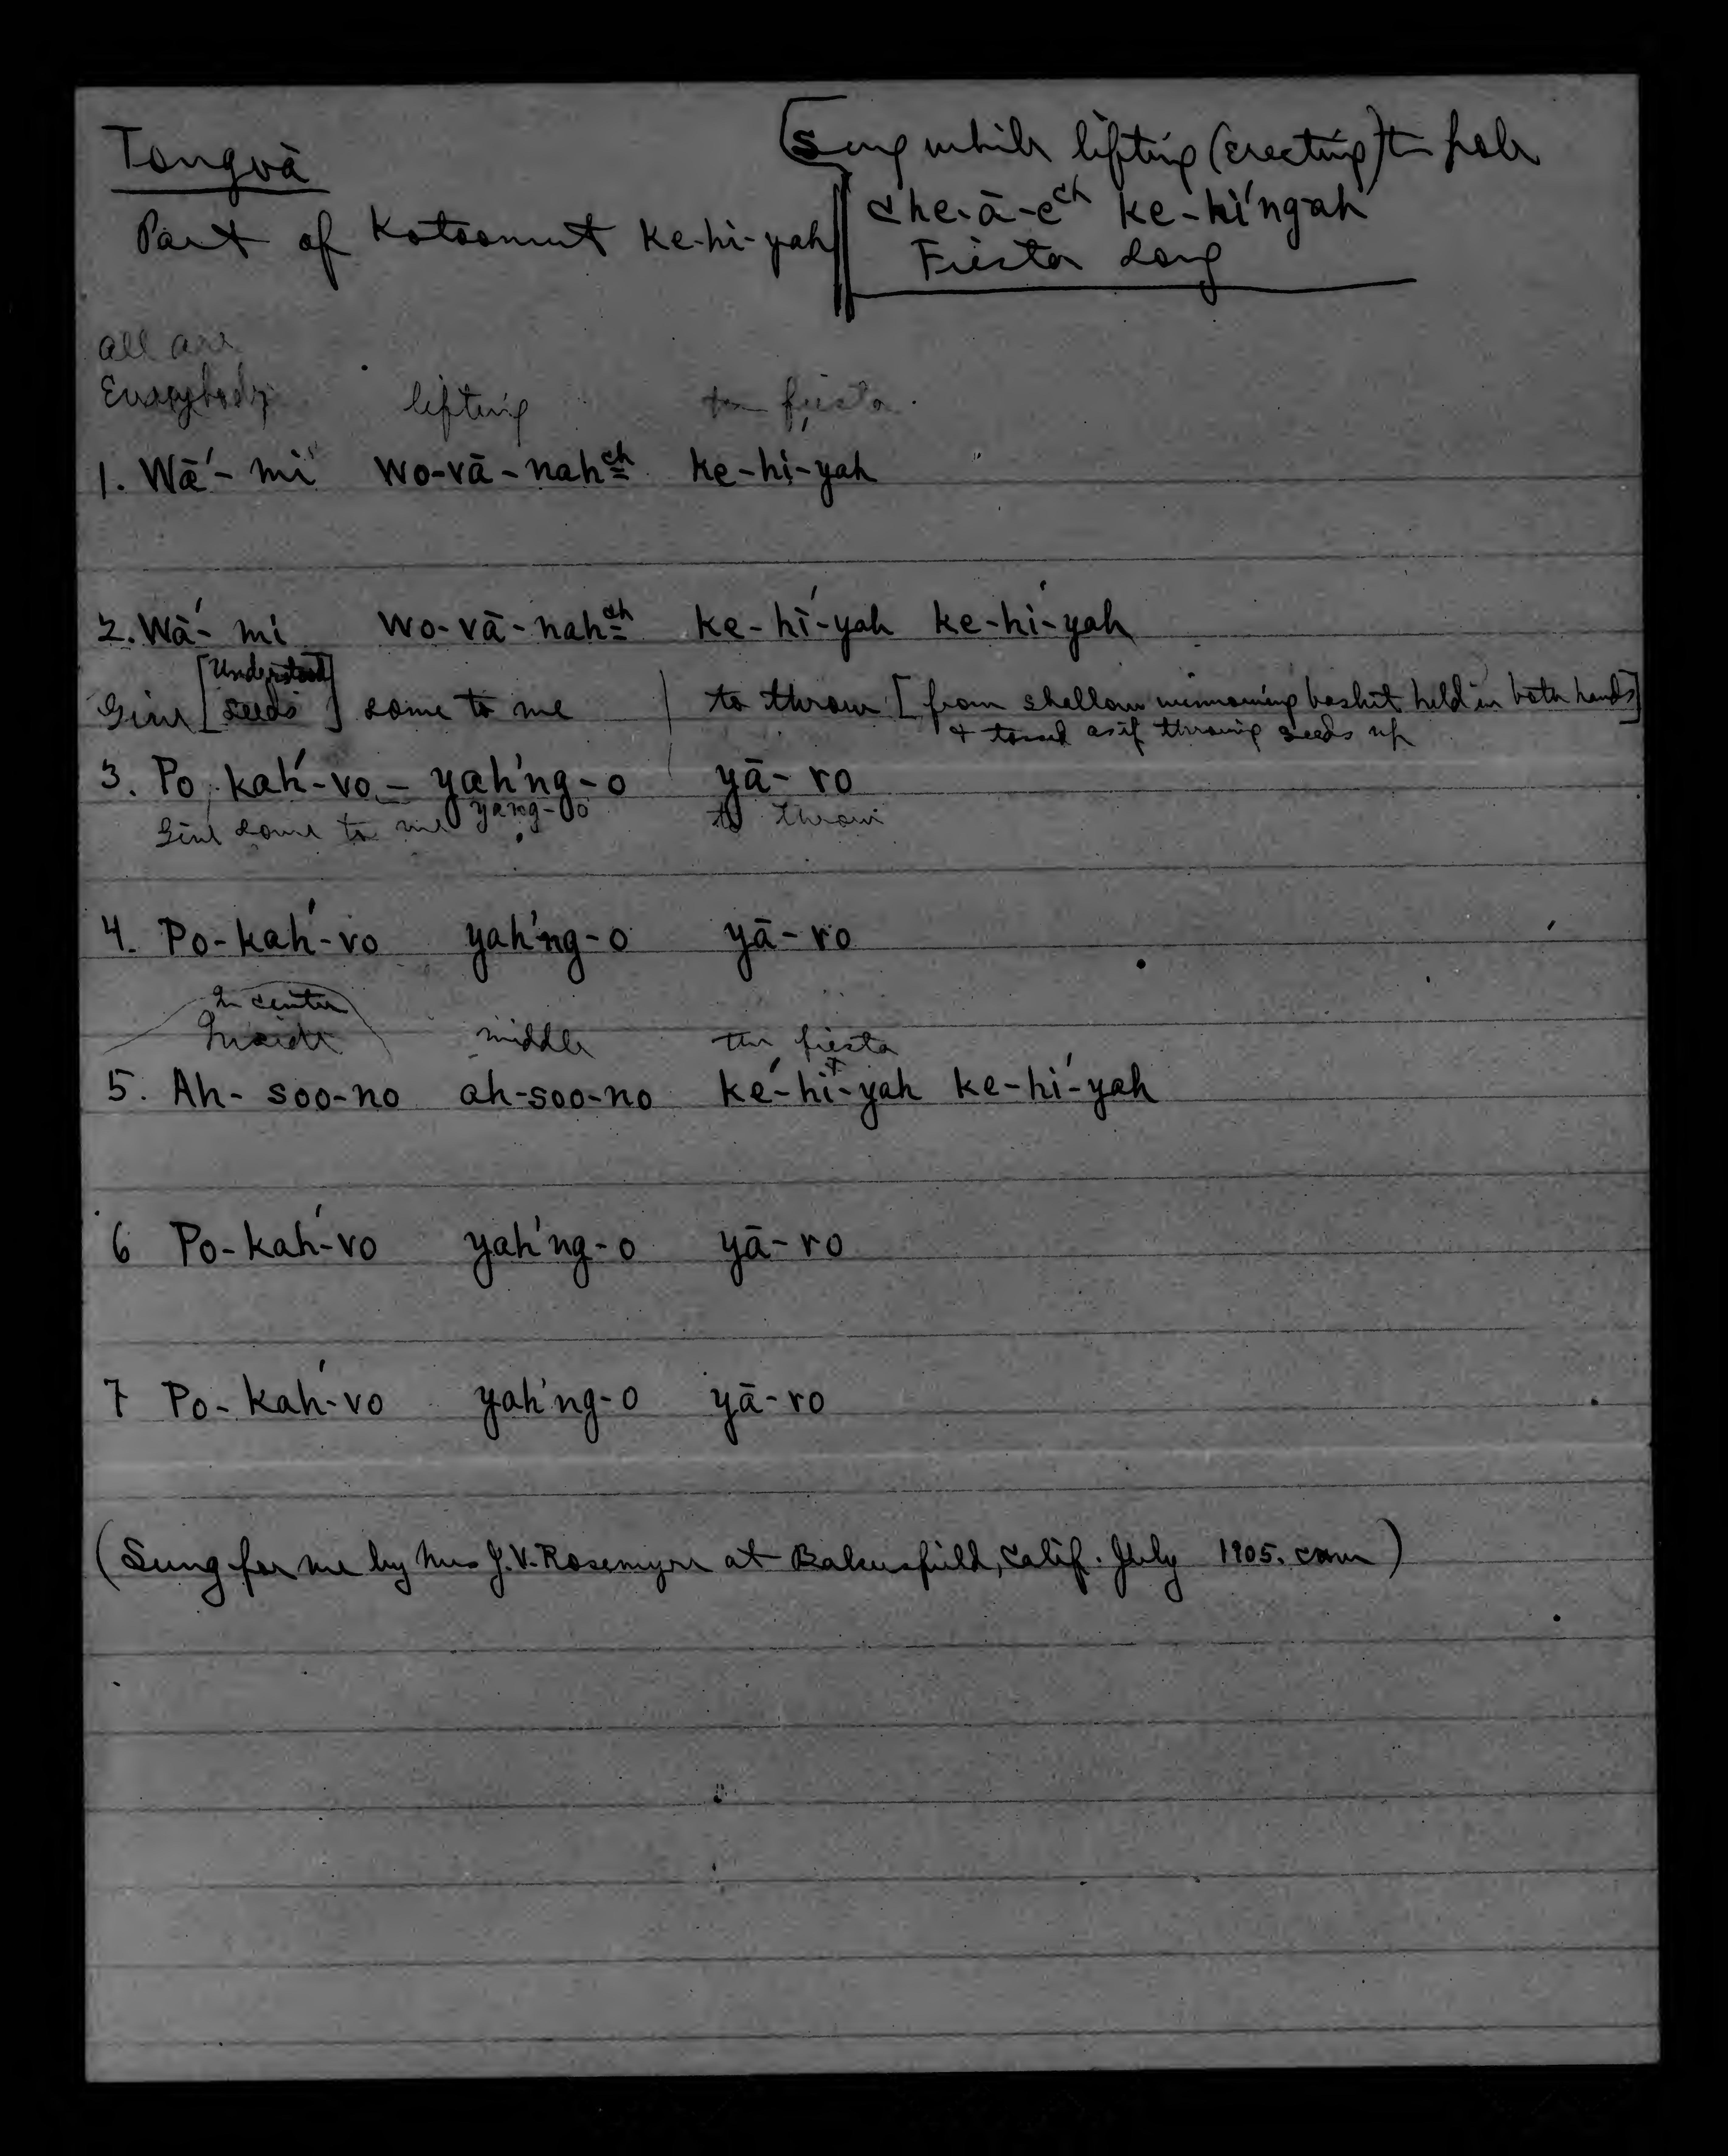 Tongvā
Part of Kotsomut ke-hi-yah
[Sung while lifting (erecting) the pole
Che-ā-ech ke-hi'ngah
Fiesta song
all are
Everybody lifting the fiesta
1. Wā'-mi wo-vā-nahch ke-hi-yah
2. Wā'-mi wo-vā-nahch ke-hi'-yah ke-hi'-yah
[Understood]
Give [seeds] some to me to throw [from shallow winnowing basket held in both hands]
& tossed as if throwing seeds up
3. Po-kah'-vo-yah'ng-o yā-ro
Give some to me yang-o to throw
4. Po-kah'-vo yah'ng-o yā-ro
In center
Inside middle the fiesta
5. Ah-soo-no ah-soo-no ke'-hi-yah ke-hi'-yah
6 Po-kah'-vo yah'ng-o yā-ro
7 Po-kah'-vo yah'ng-o yā-ro
(Sung for me by Mrs J.V. Rosemyre at Bakersfield, Calif. July 1905. CHM)